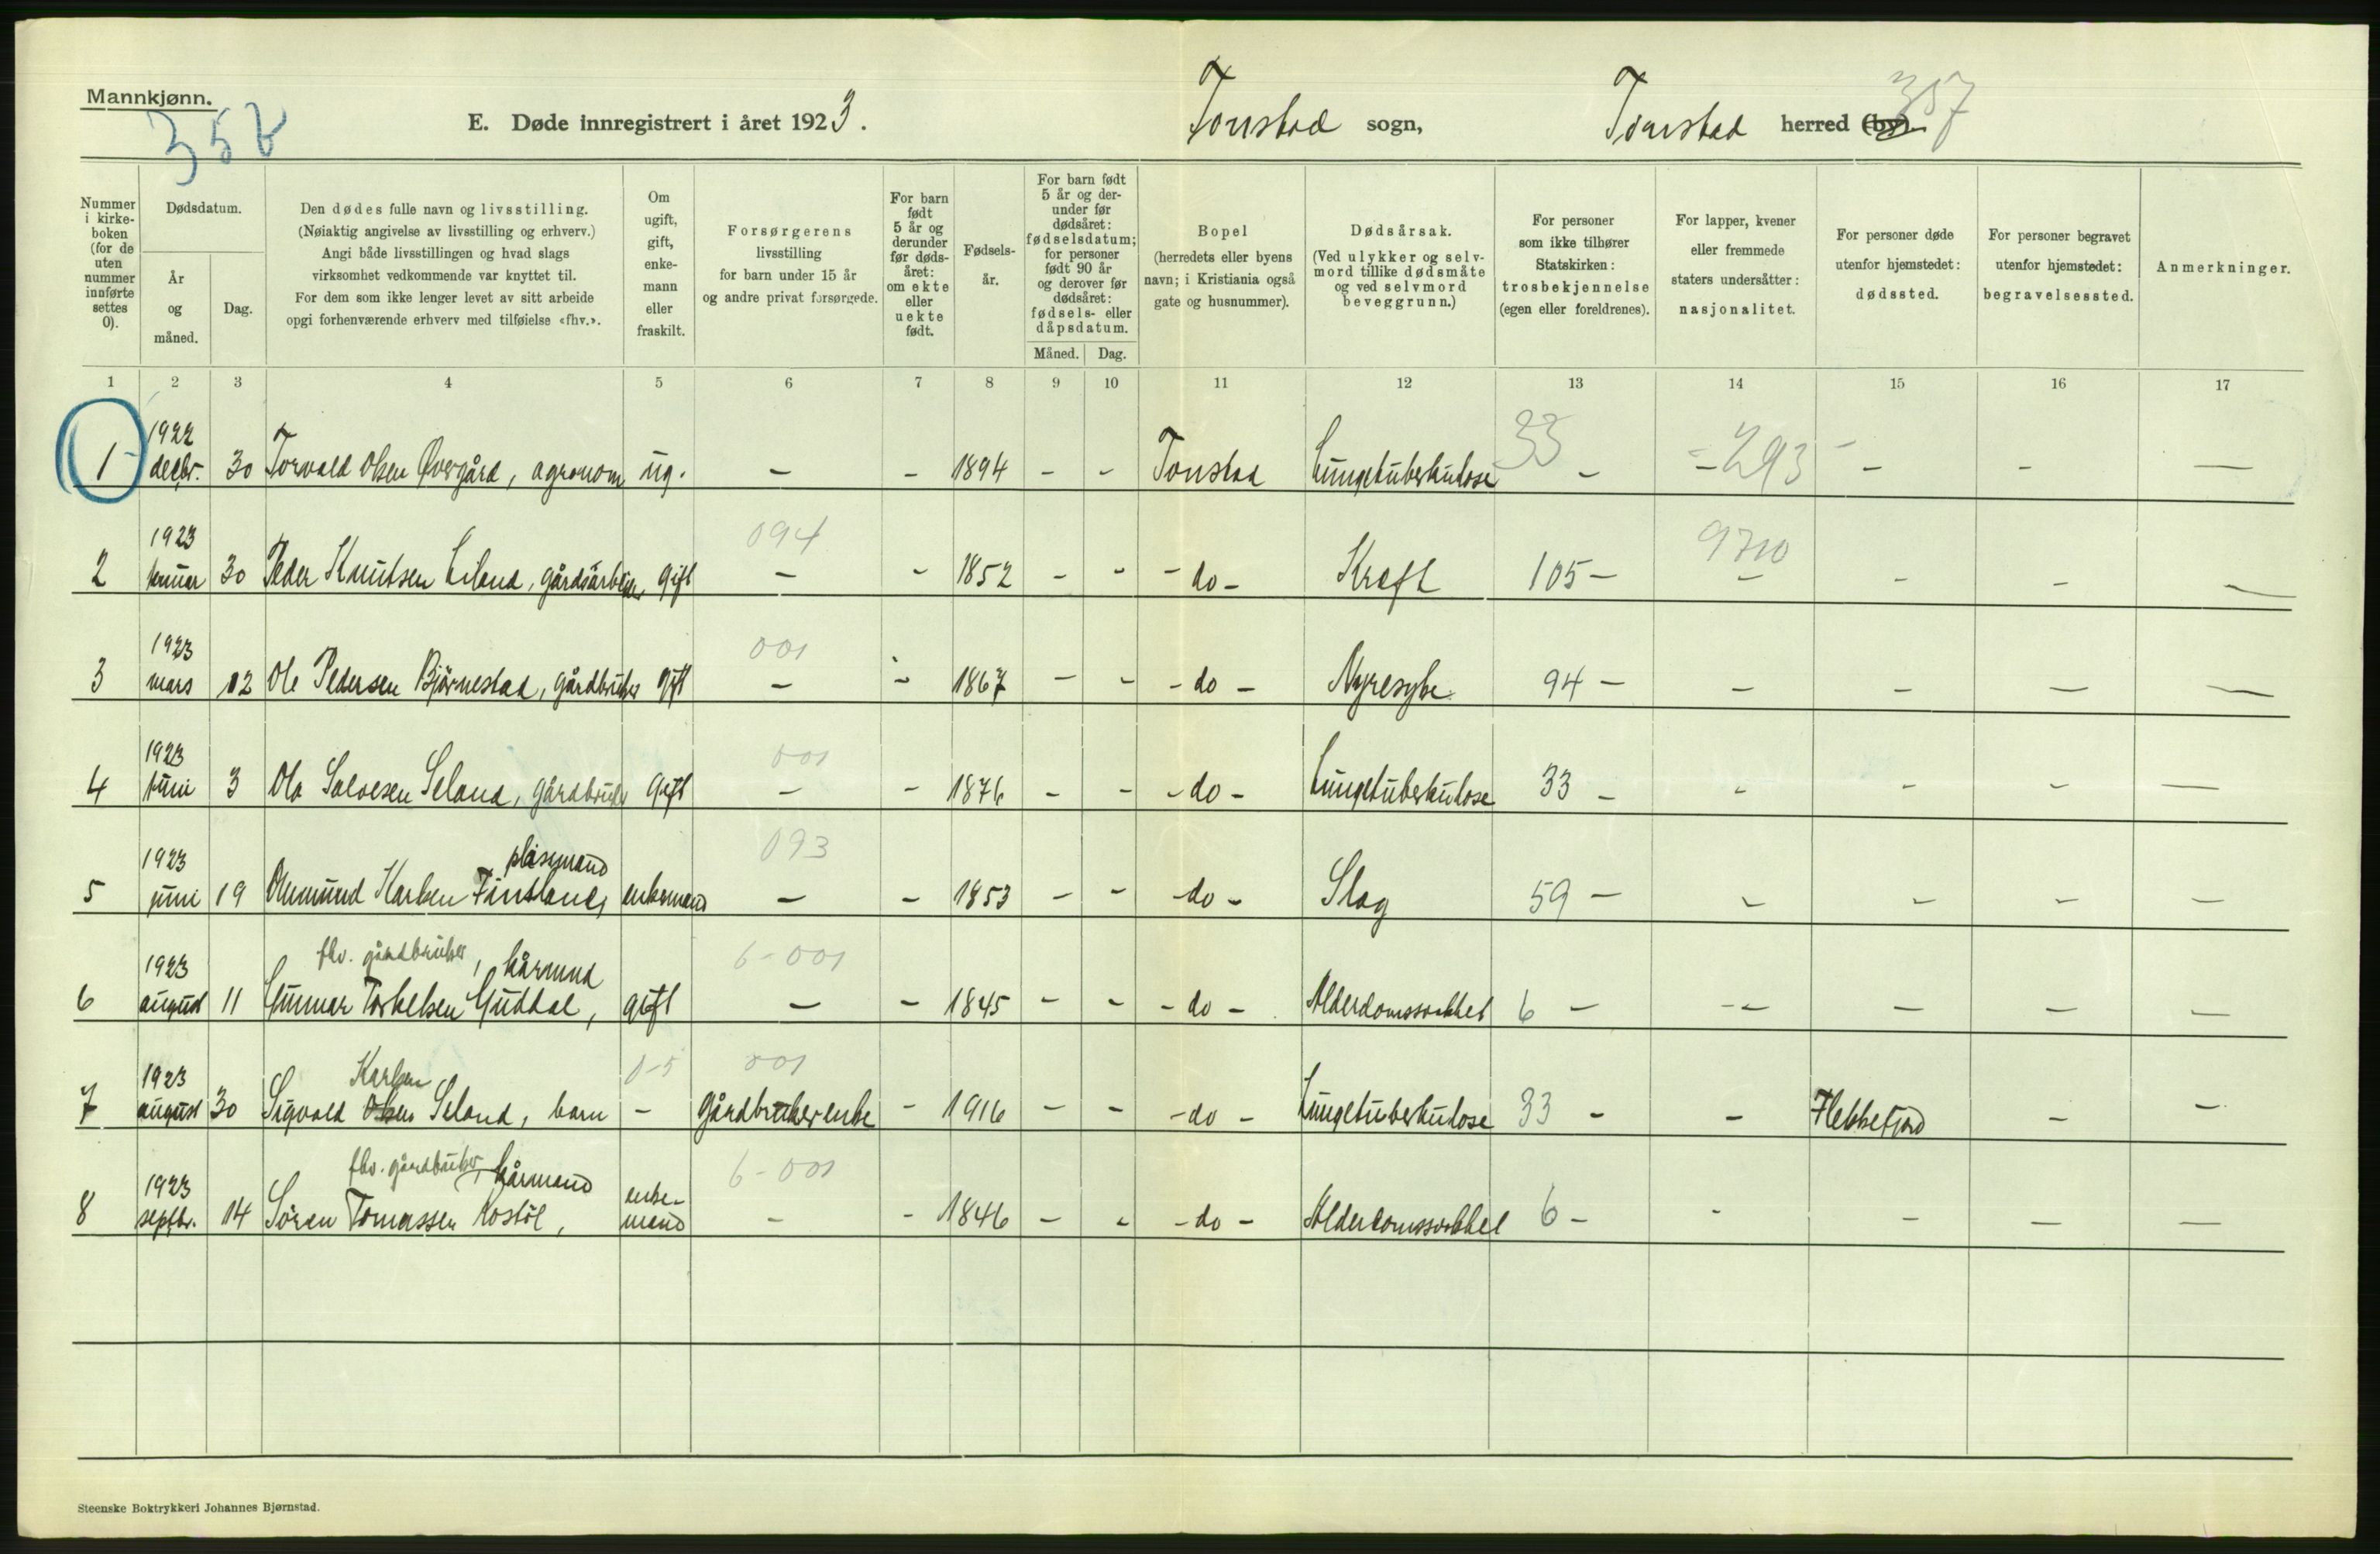 Mannkjønn.
352
E. Døde innregistrert i året 1923.
Tonstad sogn,
Tonstad herred (by).
357
Nummer i kirke-boken (for de uten nummer innførte settes 0).
Dødsdatum.
År og måned.
Dag.
Den dødes fulle navn og livsstilling.
(Nøiaktig angivelse av livsstilling og erhverv.)
Angi både livsstillingen og hvad slags
virksomhet vedkommende var knyttet til.
For dem som ikke lenger levet av sitt arbeide
opgi forhenværende erhverv med tilføielse «fhv.».
Om ugift, gift, enke-mann eller fraskilt.
Forsørgerens
livsstilling
for barn under 15 år
og andre privat forsørgede.
For barn født 5 år og derunder før døds-året: om ekte eller uekte født.
Fødsels-år.
For barn født 5 år og der-under før dødsåret: fødselsdatum; for personer født 90 år og derover før dødsåret: fødsels- eller dåpsdatum.
Måned. Dag.
Bopel
(herredets eller byens navn; i Kristiania også gate og husnummer).
Dødsårsak.
(Ved ulykker og selv-mord tillike dødsmåte og ved selvmord beveggrunn.)
For personer som ikke tilhører Statskirken: trosbekjennelse (egen eller foreldrenes).
For lapper, kvener eller fremmede staters undersåtter: nasjonalitet.
For personer døde utenfor hjemstedet: dødssted.
For personer begravet utenfor hjemstedet: begravelsessted.
Anmerkninger.
1 2 3 4 5 6 7 8 9 10 11 12 13 14 15 16 17
1 1922 decbr. 30 Torvald Olsen Øvergård, agronom ug. - - 1894 - - Tonstad Lungetuberkulose 33 - - 293 - - -
2 1923 januar 30 Peder Knutsen Eiland, gårdsarbeider gift 094 - - 1852 - - - do - Kreft 105 - 9710 - - - -
3 1923 mars 12 Ole Pedersen Bjørnestad, gårdbruker gift 001 - - 1867 - - - do - Nyresyke 94 - - - - -
4 1923 juni 3 Ola Salvesen Seland, gårdbruker gift 001 - - 1876 - - - do - Lungetuberkulose 33 - - - - -
5 1923 juni 19 Omund Karlsen Fintland, plasmand enkemand 093 - - 1853 - - - do - Slag 59 - - - - -
6 1923 august 11 fhv. gårdbruker, kårmand Gunnar Torkelsen Guddal, gift 6-001 - - 1845 - - - do - Alderdomssvakhet 6 - -- - - -
7 1923 august 30 Sigvald Olsen Karlsen Seland, barn - 0-5 001 gårdbrukerenke - 1916 - - - do - Lungetuberkulose 33 - - Flekkefjord - -
8 1923 septbr. 14 fhv. gårdbruker, kårmand Søren Tomassen Kostøl, enke-mand 6-001 - - 1846 - - - do - Alderdomssvakhet 6 - - - - -
Steenske Boktrykkeri Johannes Bjørnstad.